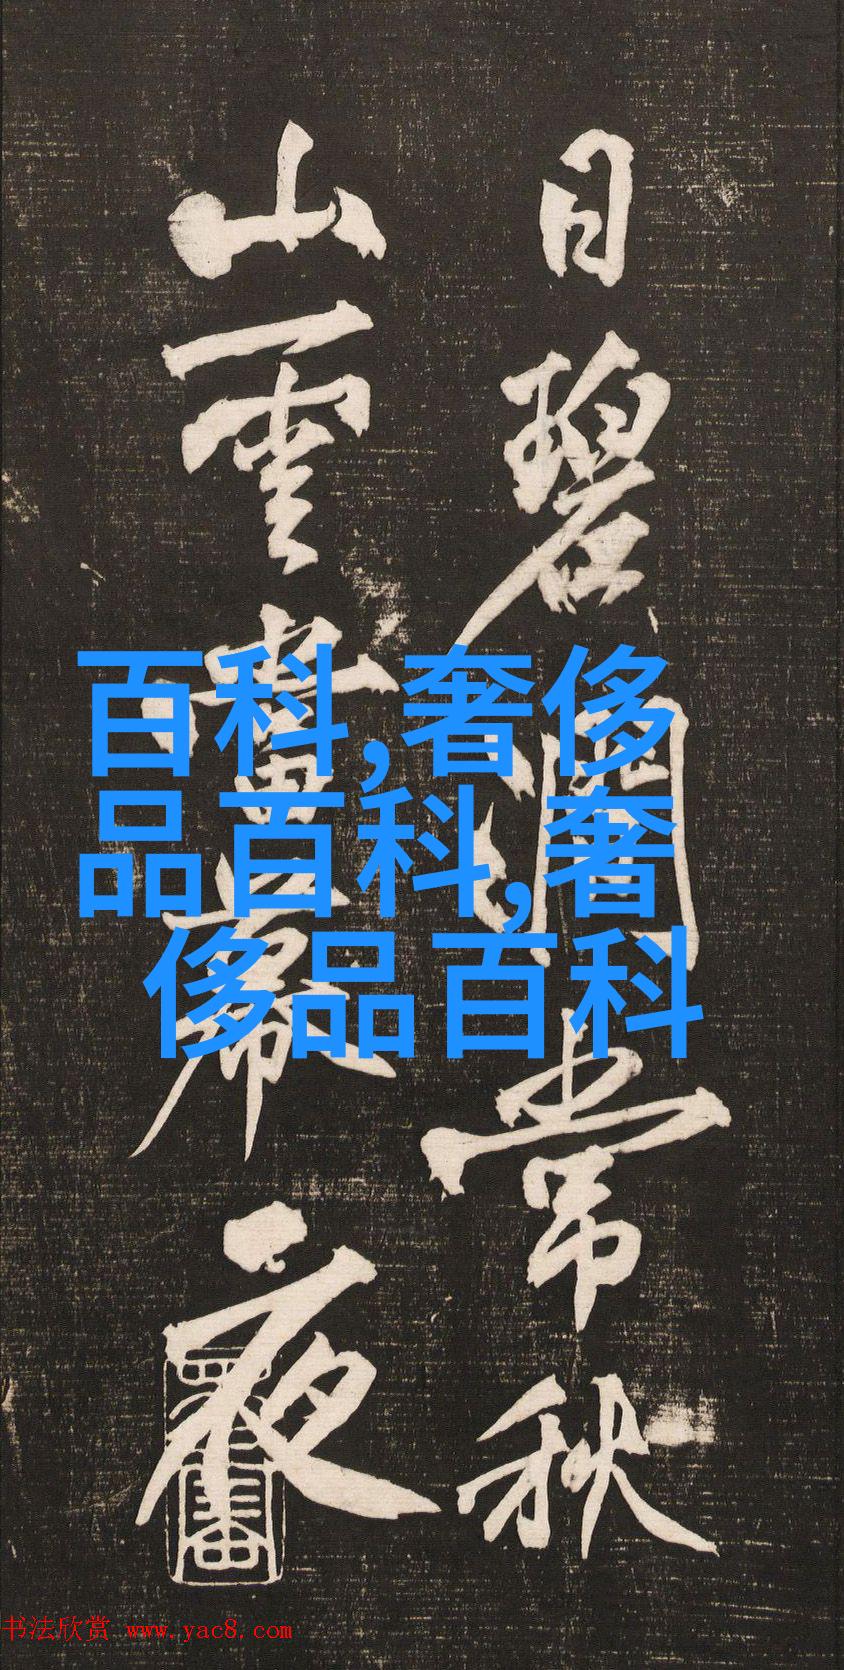 日碧澗常秋
山雲當幕夜
百科,奢侈
品百科,奢
侈品百科
书法欣赏 www.yac8.com